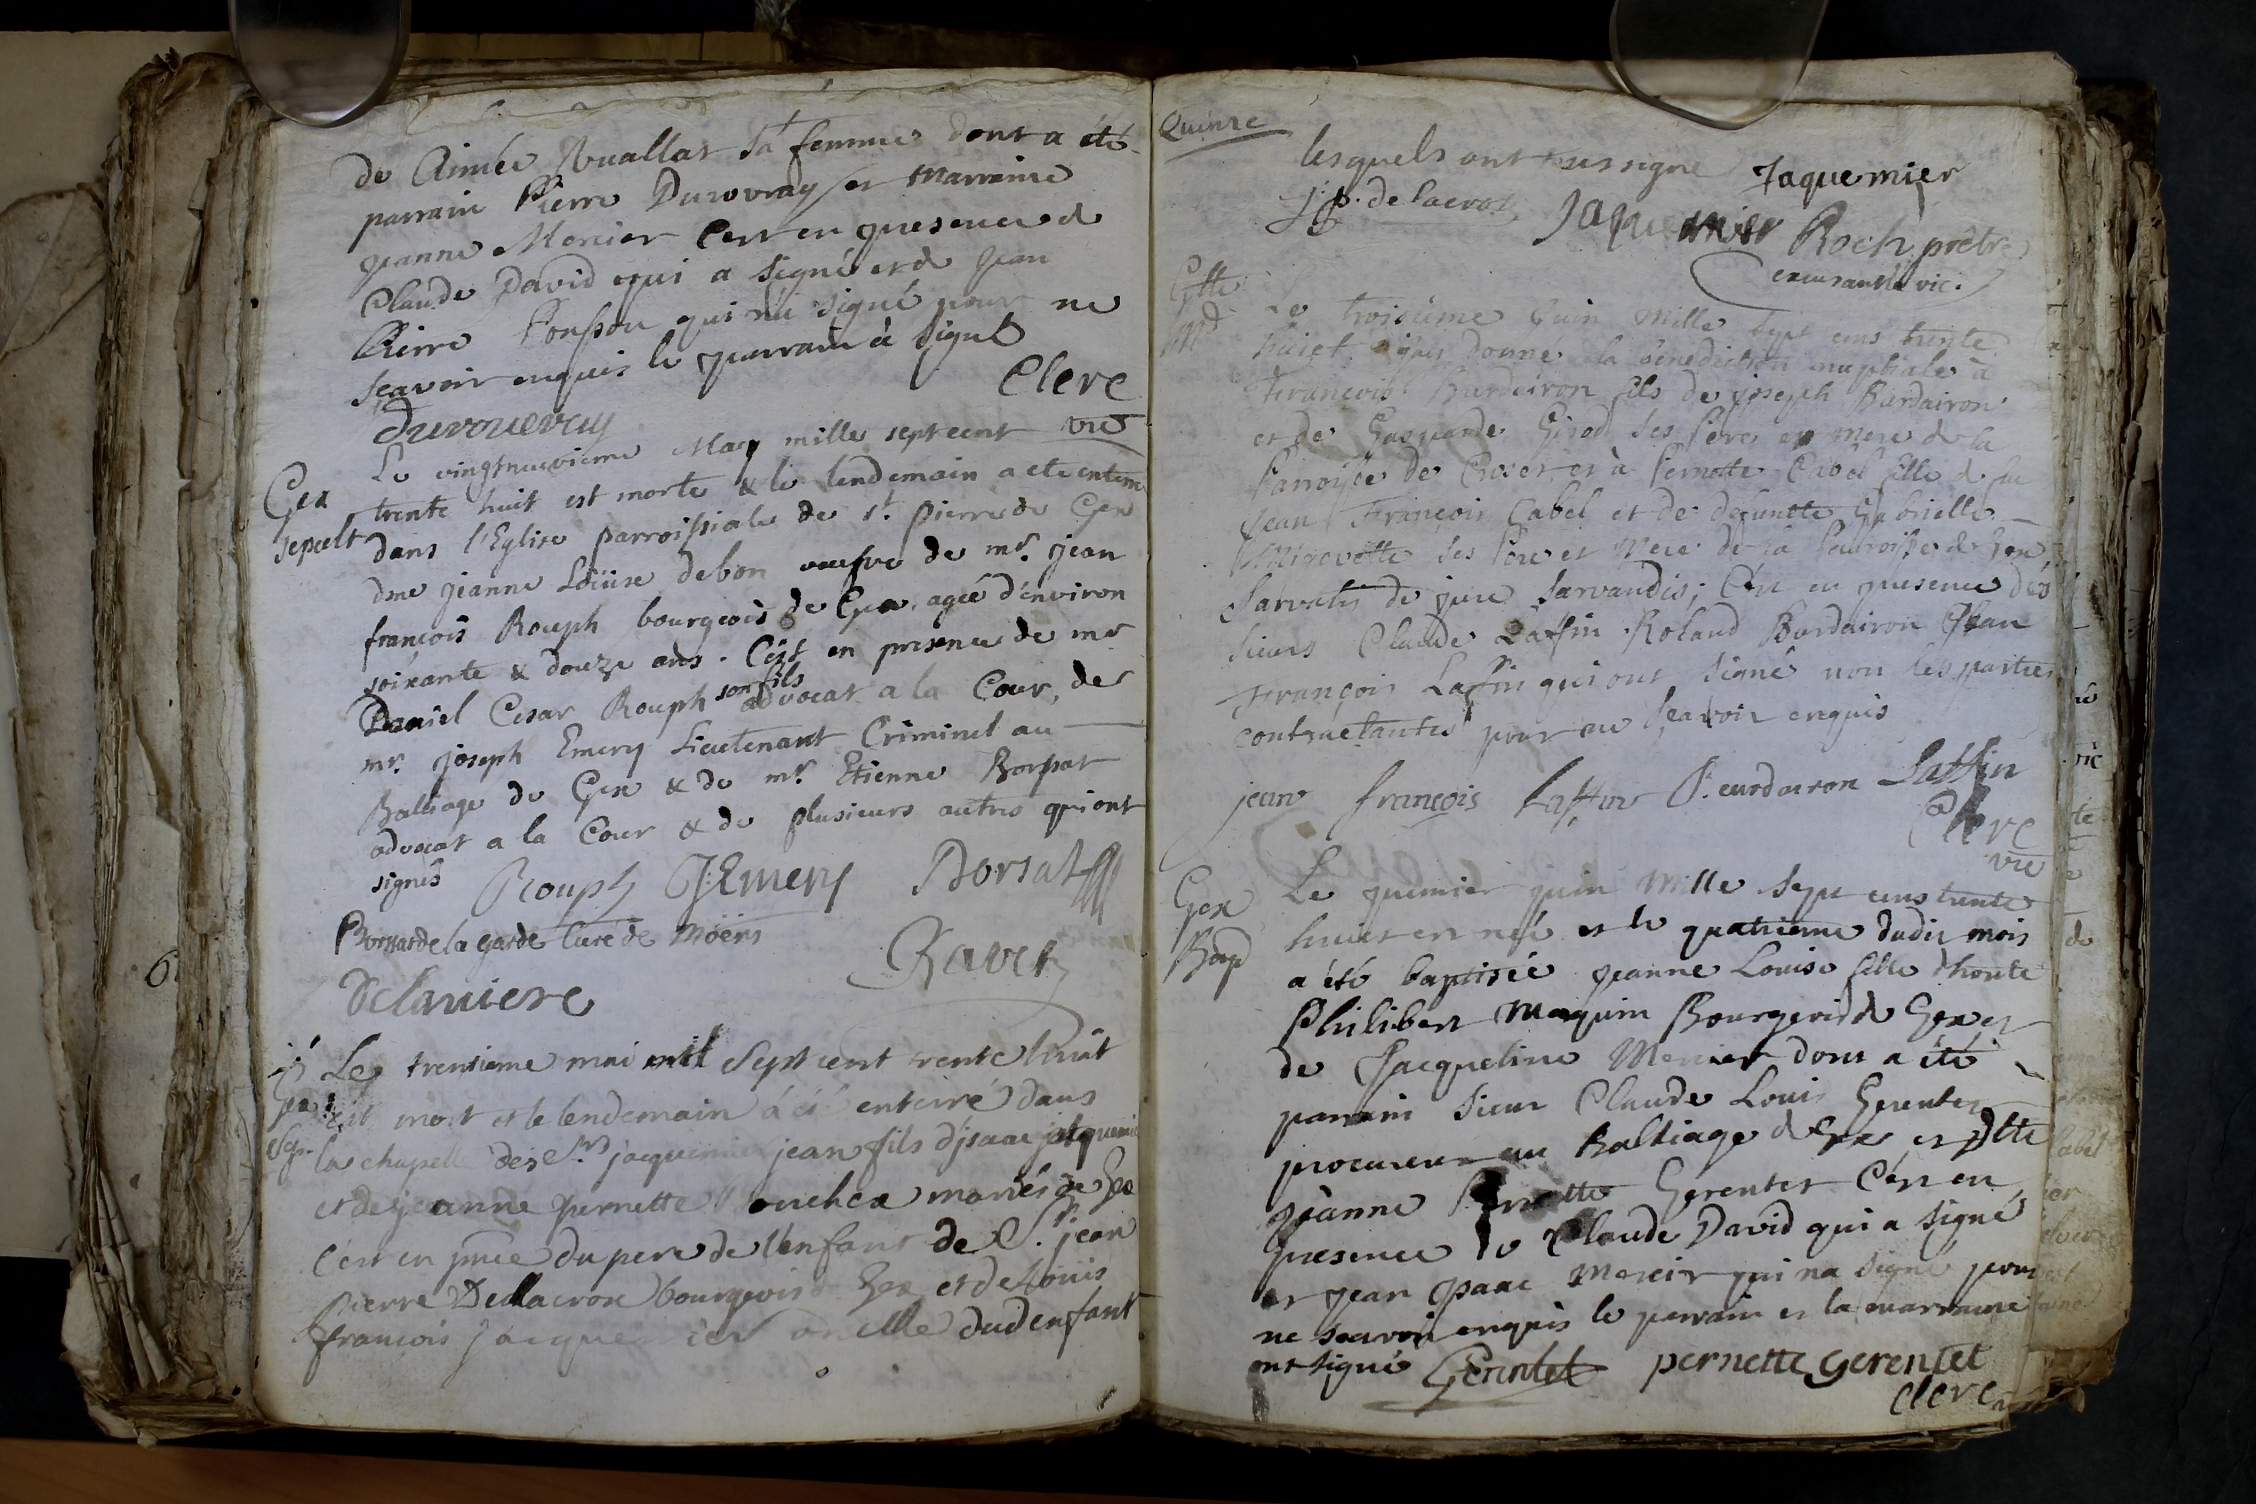 de Aimée Nuallat sa femme dont a été
parrain Pierre Duvovray et Marraine
jeanne Mercier C'est en presence de
Claude David qui a signé et de jean
Pierre qui n'a signé pour ne
sçavoir enquis le parrain a signé
Duvouevray Clerc
vic
Gex
sepult
Le vingtneuvieme May mille septcent
trente huit est morte & le lendemain a ete enterre
dans l'Eglise parroissiale de st. pierre de Gex
dme jeanne Loüise debon veufve de mr. jean
françois Rouph bourgeois de Gex, agée d'environ
soixante & douze ans. C'est en presence de mr
Daniel Cesar Rouph son fils advocat a la Cour, de
mr. joseph Emery Lieutenant Criminel au
Balliage de Gex & de mr. Etienne Borsat
advocat a la Cour & de plusieurs autres qui ont
signés Rouph J:Emery Borsat
Borsat de la garde curé de Moëns
Ravet
Delaniere
Gex
Sep.
Le trentieme mai mil Sept cent trente huit
est mort et le lendemain a été enterré dans
la chapelle des Srs jacquemier jean fils d'jsaac jacquemier
et de jeanne pernette mariés de Gex
c'est en pnce du pere de l'enfant de S. jean
Pierre Dellacroix bourgeois de Gex et de Louis
françois jacquemier oncle dud enfant
Quinze
lesquels ont sussigne Jaquemier
j.p. de lacroix Jaquemier Roch prêtre
excusant le vic.
Gex
Md
Le troisieme juin Mille sept cens trente
huict j'ai donné la bénédiction nuptiale à
François Burdairon fils de joseph Burdairon
et de Gasparde Girod ses Père et Mere de la
Parroisse de Croset et à Pernette Cabel fille de fu
Jean François Cabel et de défuntte Gabrielle
ses Père et Mere de la Parroisse de Gex
Servatis de jure Servandis; C'est en presence des
sieurs Claude Laffin Roland Burdairon Jean
François Laffin qui ont signé non les parties
contractantes pour ne sçavoir enquis
jean françois Laffin R. eurdairon Laffin
Clerc
vic
Gex
Bap
Le premier juin Mille Sept cens trente
huict est née et le quatrieme dudit mois
a été baptisée jeanne Louise fille d'honte
Philibert Maquin Bourgeois de Gex et
de Jacqueline Mercier dont a été
parrain Sieur Claude Louis Gerentet
procureur au Balliage de Gex et Dlle
Jeanne Pernette Gerentet C'est en
presence de Claude David qui a signé
et jean Isaac Mercier qui n'a signé pour
ne sçavoir enquis le parrain et la marraine
ont signé Gerentet pernette gerentet
Clerc